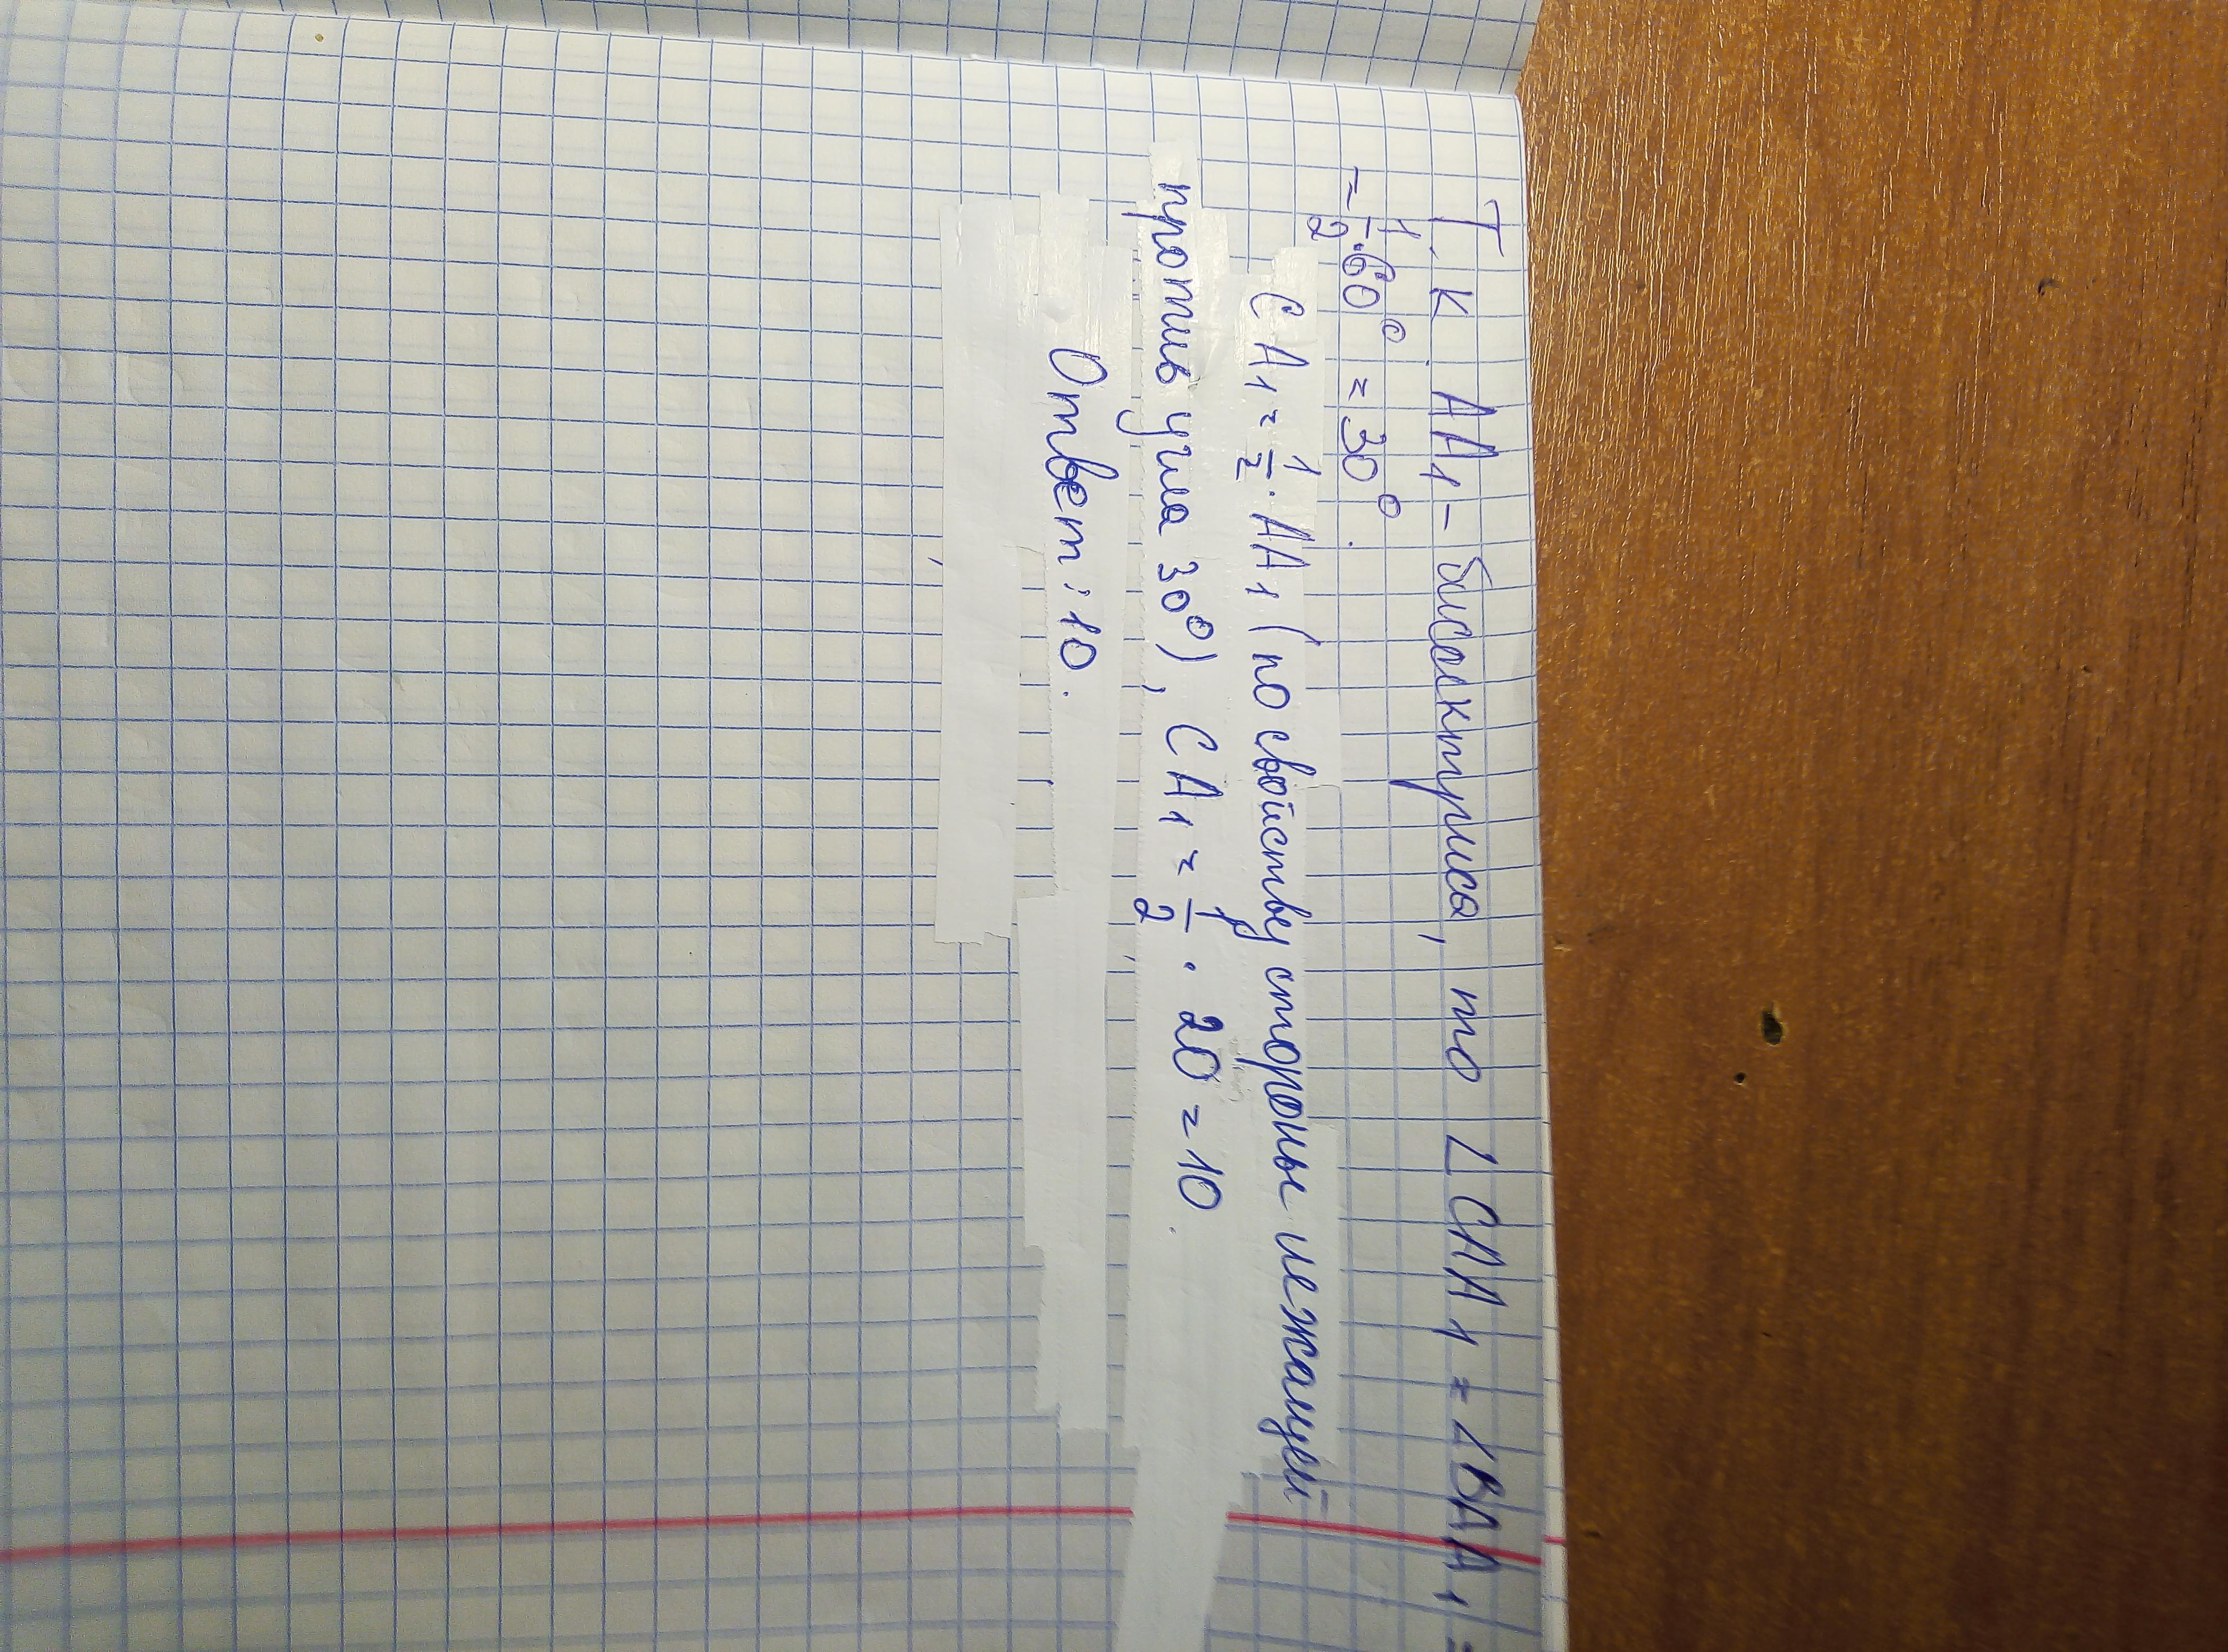 Т. к. АА₁ – биссектриса, то ∠САА₁ = ∠ВАА₁ =
= 1/2 · 60° = 30°.
СА₁ = 1/2 · АА₁ (по свойству стороны лежащей
против угла 30°), СА₁ = 1/2 · 20 = 10.
Ответ: 10.